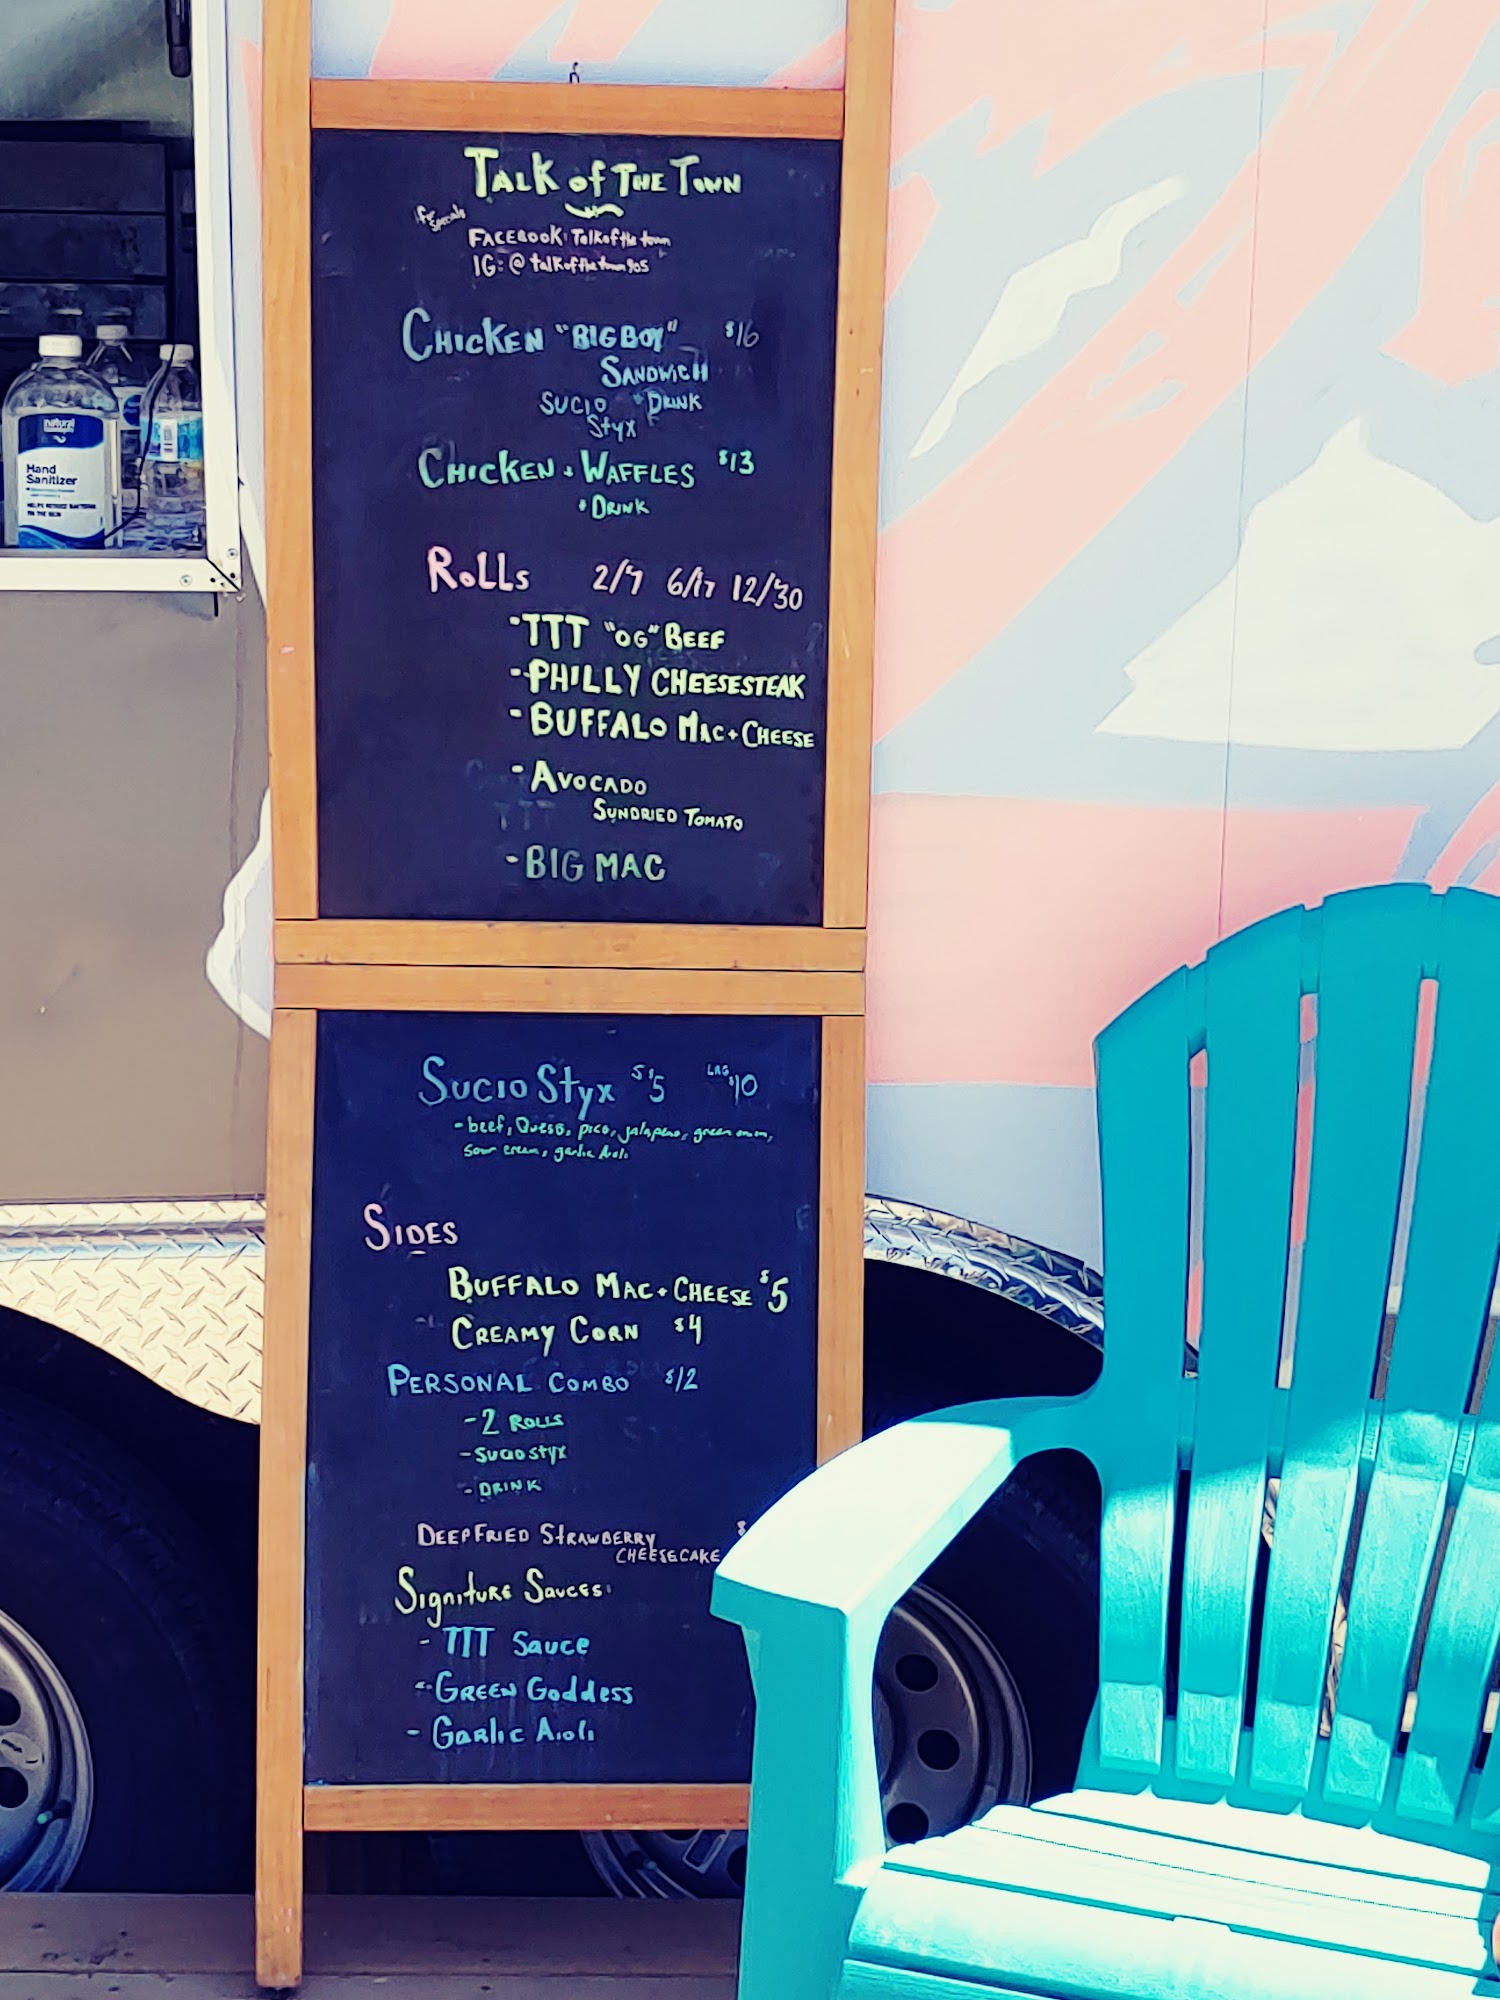 TALK of THE TOWN
FACEBOOK: Talkofthetown
IG: @talkofthetown905
CHICKEN "BIG BOY" $16
SANDWICH
SUCIO + DRINK
Styx
CHICKEN + WAFFLES $13
+ DRINK
ROLLS 2/7 6/17 12/30
- TTT "OG" BEEF
- PHILLY CHEESESTEAK
- BUFFALO MAC + CHEESE
- AVOCADO
SUNDRIED TOMATO
- BIG MAC
SUCIO Styx S $5 LRG $10
- beef, Queso, pico, jalapeno, green onion,
sour cream, garlic Aioli
SIDES
BUFFALO MAC + CHEESE $5
CREAMY CORN $4
PERSONAL COMBO $12
- 2 ROLLS
- SUCIO Styx
- DRINK
DEEP FRIED STRAWBERRY $
CHEESECAKE
SigNiture Sauces:
- TTT Sauce
- GREEN Goddess
- Garlic Aioli
natural
Hand
Sanitizer
HELPS REDUCE BACTERIA
ON THE SKIN